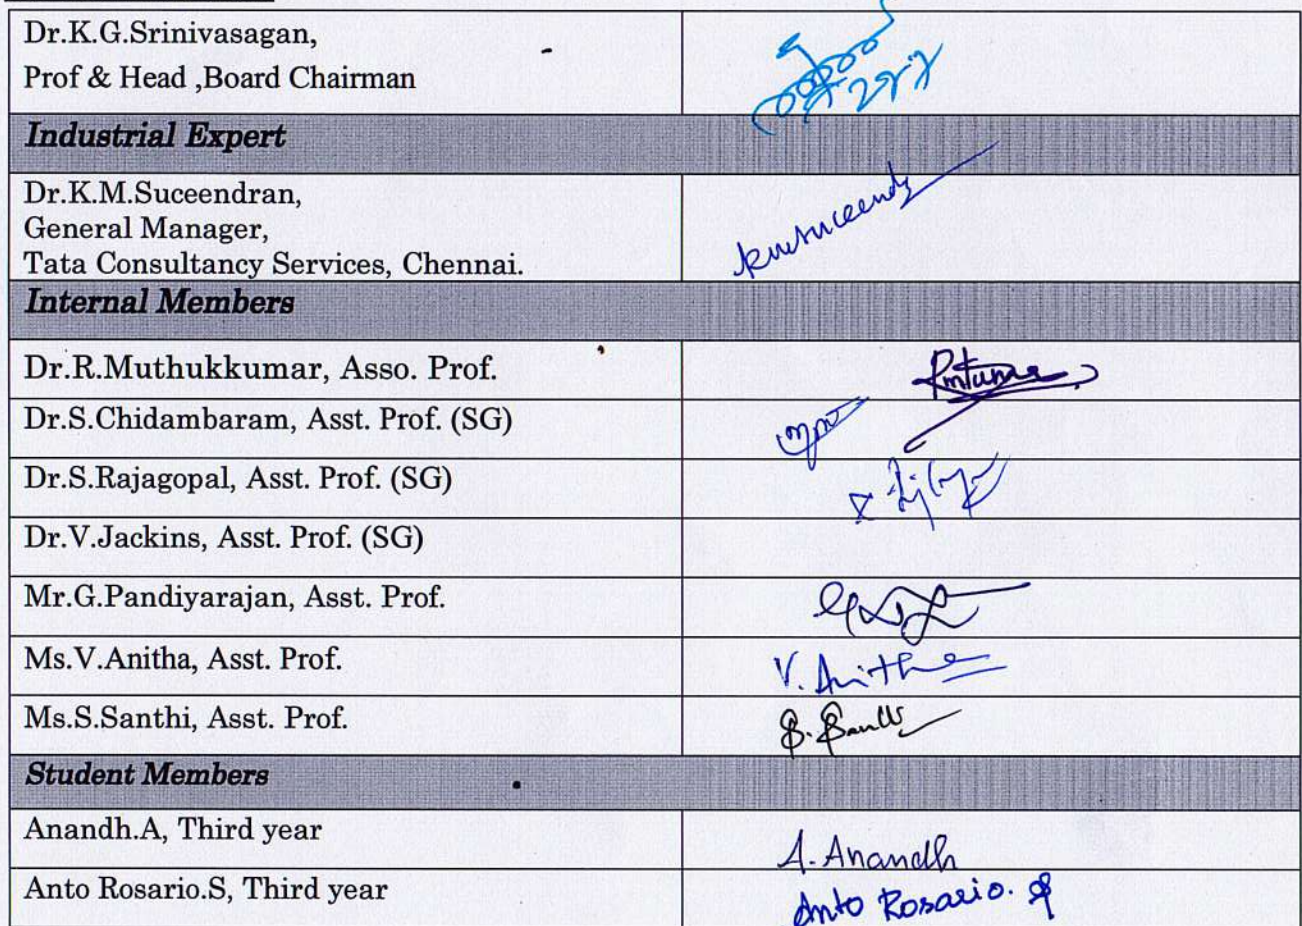 Dr.K.G.Srinivasagan,
Prof & Head ,Board Chairman
Industrial Expert
Dr.K.M.Suceendran,
General Manager,
Tata Consultancy Services, Chennai.
kmsuceendr
Internal Members
Dr.R.Muthukkumar, Asso. Prof.
Dr.S.Chidambaram, Asst. Prof. (SG)
Dr.S.Rajagopal, Asst. Prof. (SG)
Dr.V.Jackins, Asst. Prof. (SG)
Mr.G.Pandiyarajan, Asst. Prof.
Ms.V.Anitha, Asst. Prof.
V. Anitha
Ms.S.Santhi, Asst. Prof.
Student Members
Anandh.A, Third year
A. Anandh
Anto Rosario.S, Third year
Anto Rosario. S